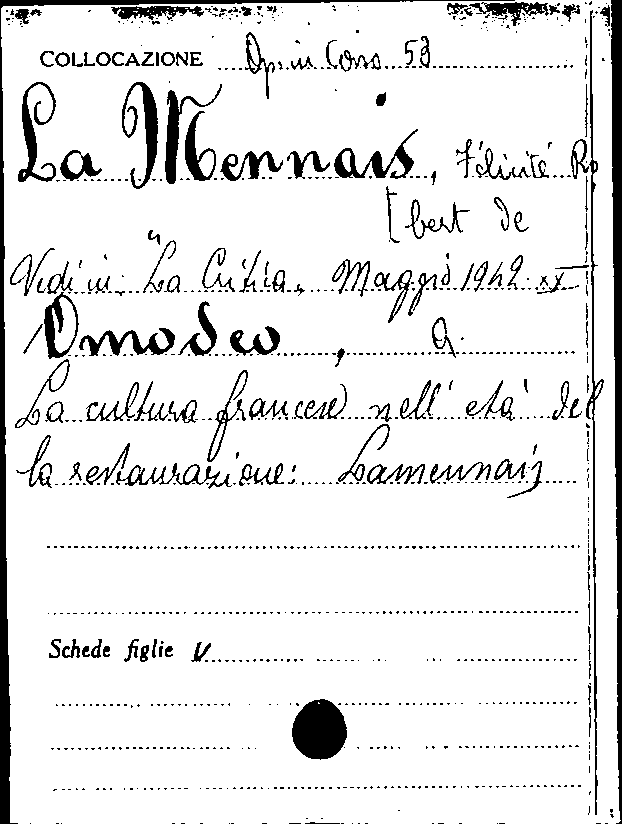 COLLOCAZIONE Op. in Corso 53
La Mennais, Félicité Ro
[bert de
Vedi in: "La Critica, Maggio 1942. XX
Omodeo, A.
La cultura francese nell' età del
la restaurazione: Lamennais
Schede figlie V